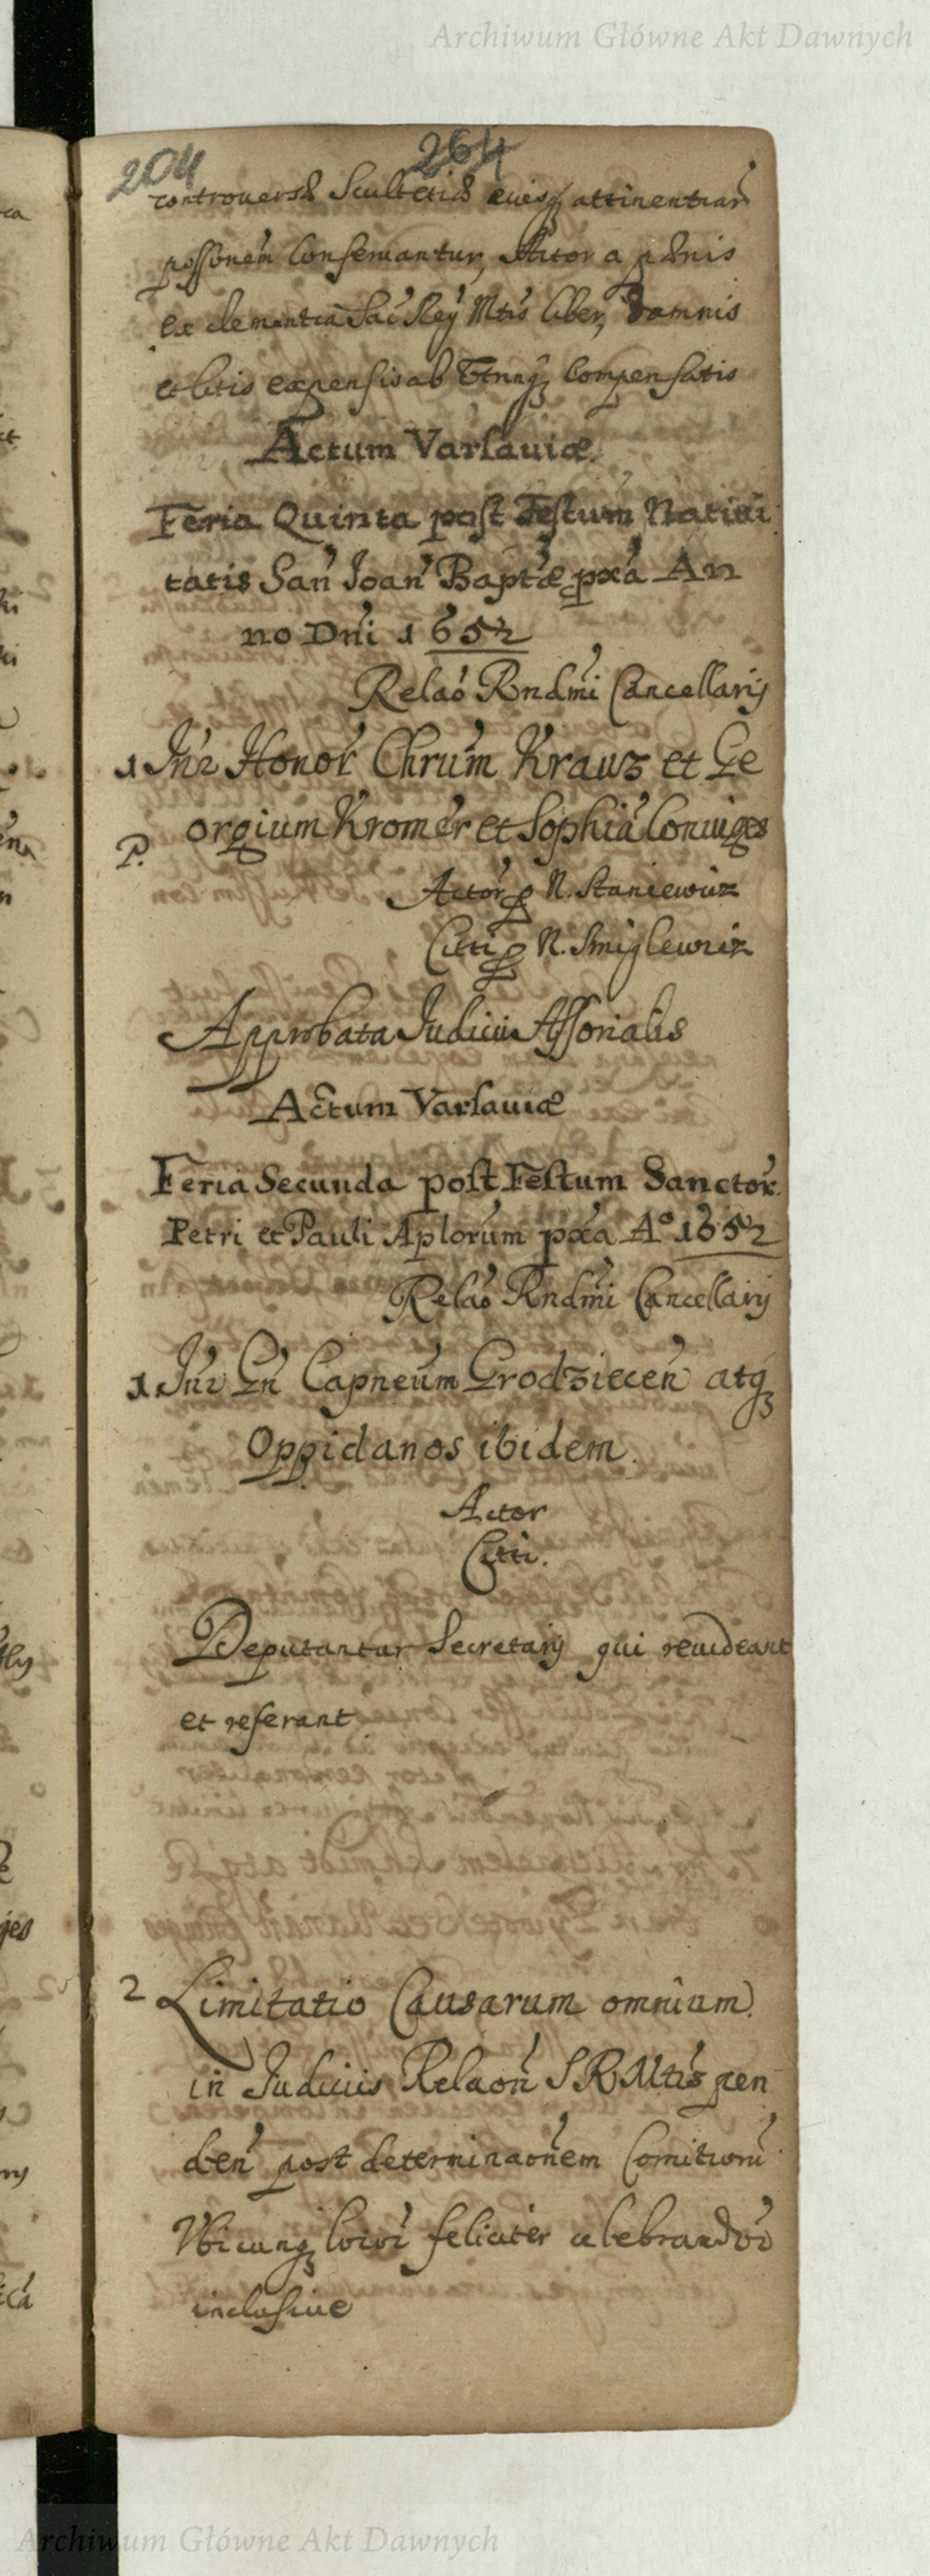 Archiwum Główne Akt Dawnych
204 264
controvers& Scultetis eiusq attinentiar
possonem conseruantur, Actor a pænis
ex clementia Sac Reg Mtis liber, damnis
et litis expensis ab utrinq compensatis
Actum Varsauiæ
Feria Quinta post Festum Natiui
tatis San Joan Baptæ pxa An
no Dni 1652
Relao Rndmi Cancellarij
1 Inr Honor Chrum Krauz et Ge
orgium Kromer et Sophia Coniuges
P.
Actor p N. Staniewicz
Citi p N. Smiglewicz
Approbata Judicii Assorialis
Actum Varsauiæ
Feria Secunda post Festum Sanctor
Petri et Pauli Aplorum pxa A° 1652
Relao Rndmi Cancellarij
1. Inr Gn Capneum Grodziecen atq
Oppidanos ibidem.
Actor
Citi.
Deputantur Secretarij qui reuideant
et referant
2 Limitatio Causarum omnium
in Judiciis Relaon S R Mtis pen
den post determinaonem Comitioru
Vbicunq locor feliciter celebrandor
inclusiue
Archiwum Główne Akt Dawnych